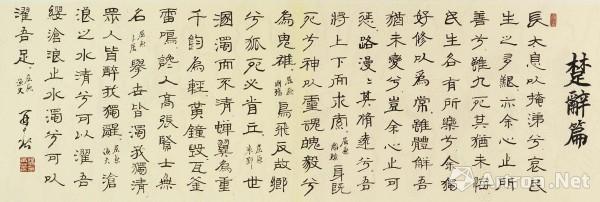 楚辭篇
長太息以掩涕兮哀民
生之多艱亦余心之所
善兮雖九死其猶未悔
民生各有所樂兮余獨
好修以為常雖體解吾
猶未變兮豈余心之可
懲路漫漫其脩遠兮吾
將上下而求索 屈原離騷 身既
死兮神以靈魂魄毅兮
為鬼雄 屈原國殤 鳥飛反故鄉
兮狐死必首丘 屈原哀郢 世
溷濁而不清蟬翼為重
千鈞為輕黃鐘毀瓦釜
雷鳴讒人高張賢士無
名 屈原卜居 舉世皆濁我獨清
眾人皆醉我獨醒 屈原漁父 滄
浪之水清兮可以濯吾
纓滄浪之水濁兮可以
濯吾足 屈原漁父
Artron.Net